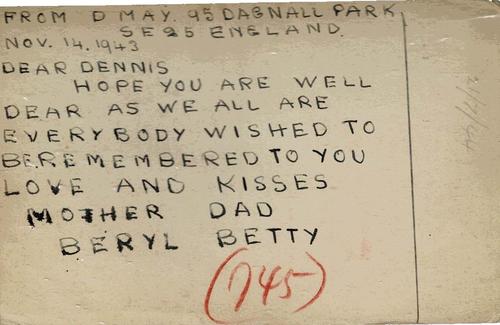 FROM D MAY. 95 DAGNALL PARK
SE25 ENGLAND.
NOV. 14. 1943
DEAR DENNIS
HOPE YOU ARE WELL
DEAR AS WE ALL ARE
EVERYBODY WISHED TO
BE REMEMBERED TO YOU
LOVE AND KISSES
MOTHER DAD
BERYL BETTY
(745)